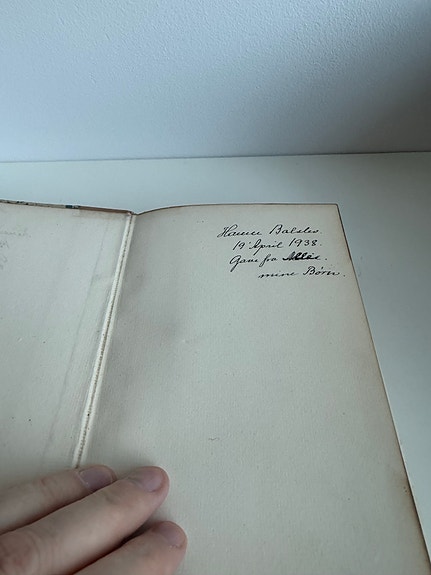 Hanne Balslev.
19' April 1938.
Gave fra
mine Børn.